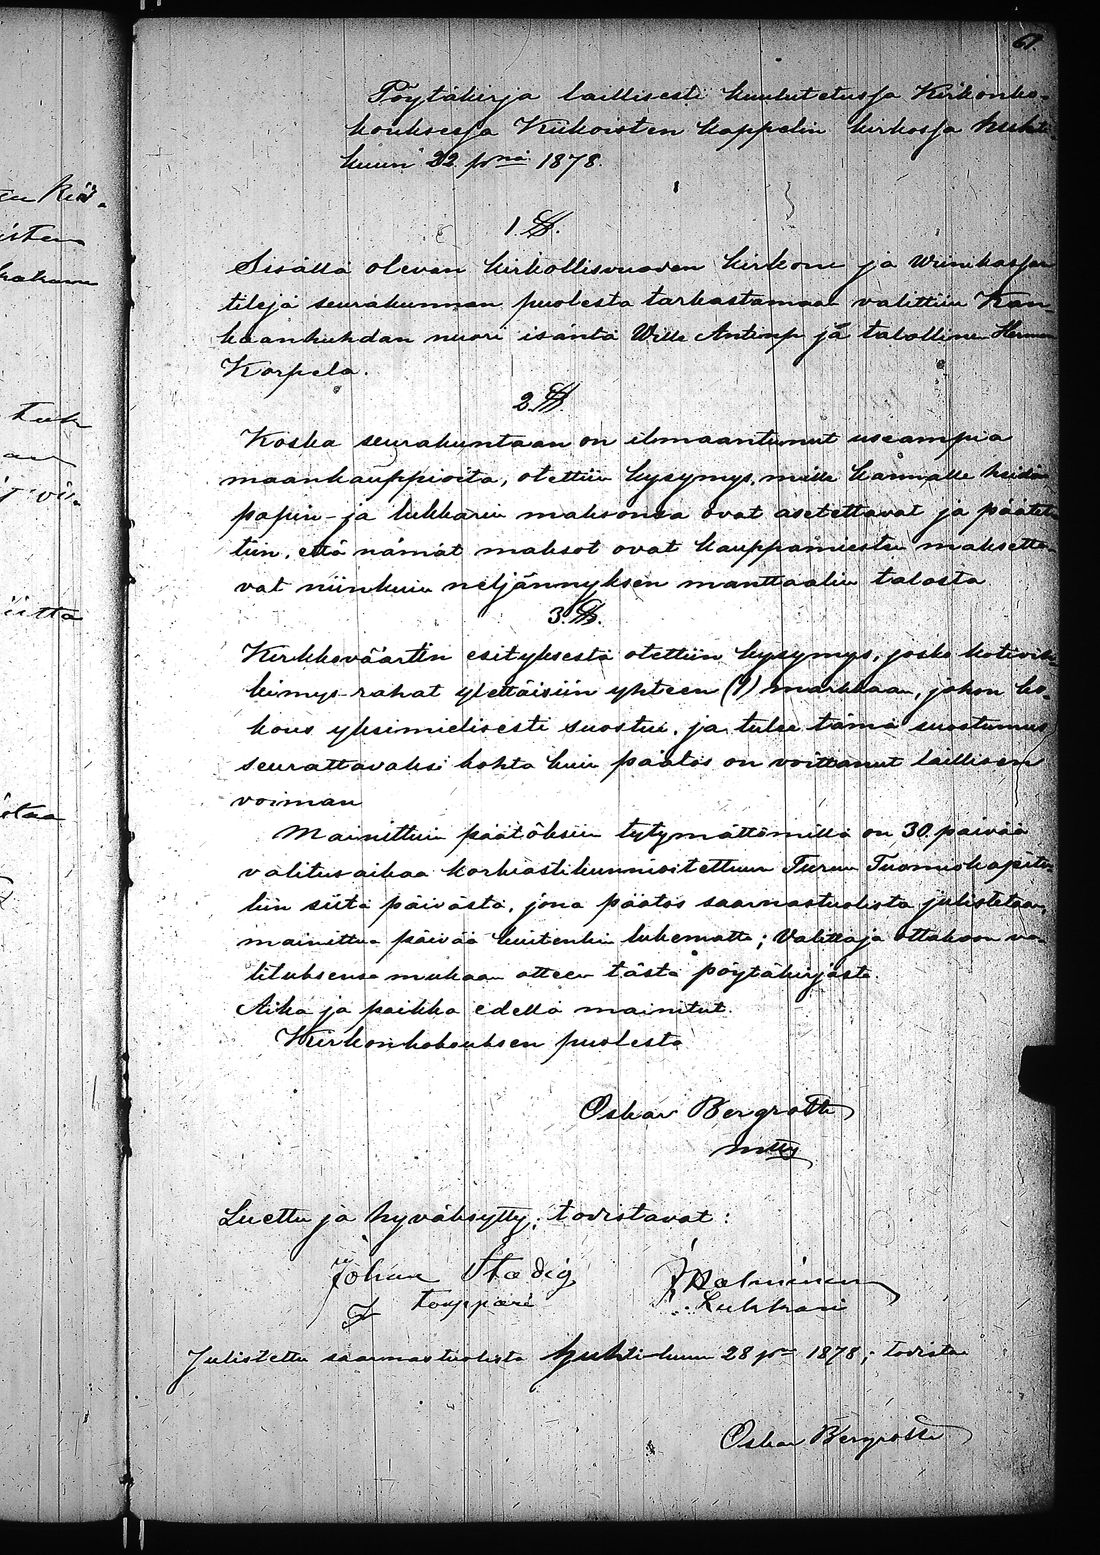 61.
Pöytäkirja laillisesti kuulutetussa Kirkonko-
kouksessa Kiikoisten kappelin kirkossa huhti-
kuun 22 p:nä 1878.
1 §.
Sisällä olevan kirkollisvuoden kirkon ja viinikassan
tilejä seurakunnan puolesta tarkastamaan valittiin Kan-
kaanhuhdan nuori isäntä Wille Antinp ja talollinen Herman
Korpela.
2 §.
Koska seurakuntaan on ilmaantunut useampia
maankauppioita, otettiin kysymys, mille kannalle heidän
papin- ja lukkarin maksonsa ovat asetettavat ja päätet-
tiin, että nämät maksot ovat kauppamiesten maksetta-
vat niinkuin neljännyksen manttaalin talosta
3 §.
Kirkkoväärtin esityksestä otettiin kysymys, josko kotivih-
kimys-rahat ylettäisiin yhteen (1) markkaan, johon ko-
kous yksimielisesti suostui, ja tulee tämä suostumus
seurattavaksi kohta kuin päätös on voittanut laillisen
voiman
Mainittuin päätöksiin tytymättömillä on 30 päivää
valitusaikaa korkiastikunnioitettuun Turun Tuomiokapitu-
liin siitä päivästä, jona päätös saarnastuolista julistetaan,
mainittua päivää kuitenkin lukematta; Valittaja ottakoon va-
lituksensa mukaan otteen tästä pöytäkirjasta.
Aika ja paikka edellä mainitut.
Kiirkonkokouksen puolesta
Oskar Bergroth
Luettu ja hyväksytty; todistavat:
Johan Stadig
Touppari
Lukkari
Julistettu saarnastuolista huhti-kuun 28 p:nä 1878; todistaa
Oskar Bergroth